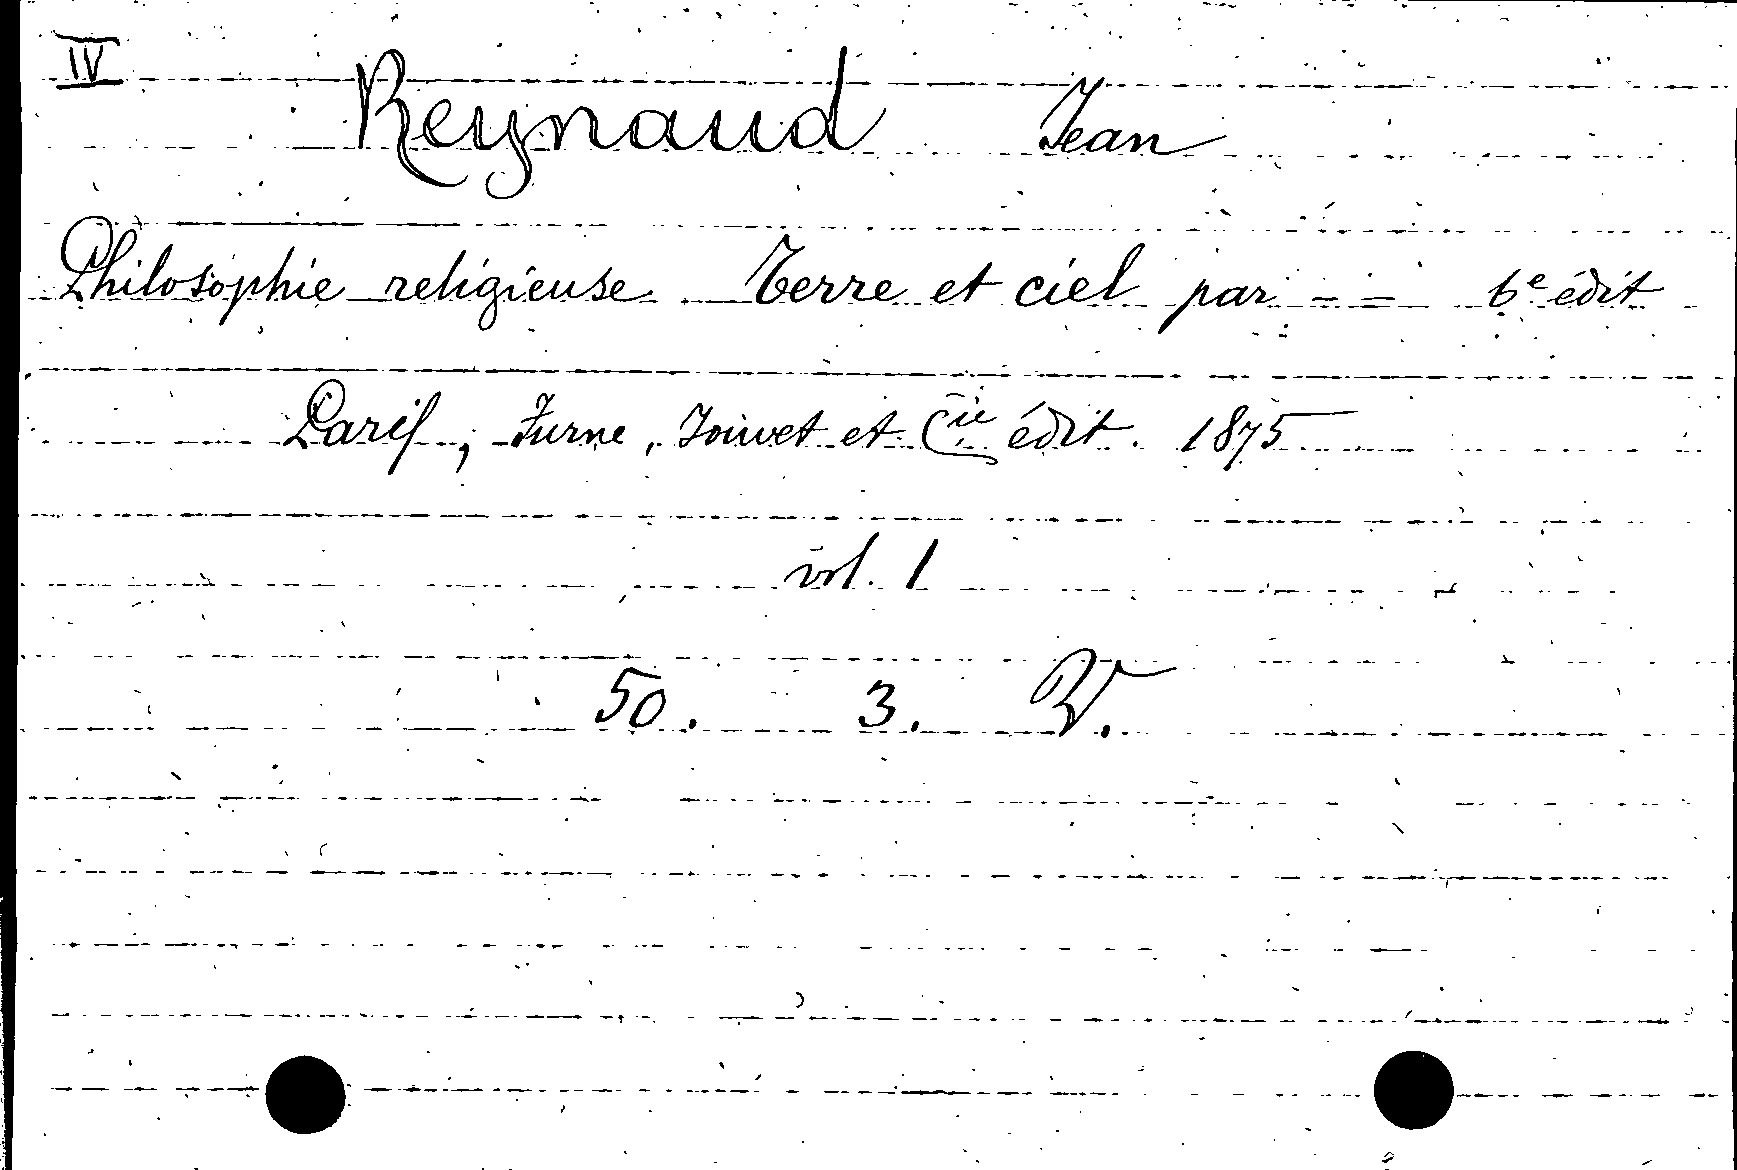 IV
Reynaud Jean
Philosophie religieuse. Terre et ciel par - = 6e édit
Paris, Furne, Jouvet et Cie édit. 1875
vol. 1
50. 3.